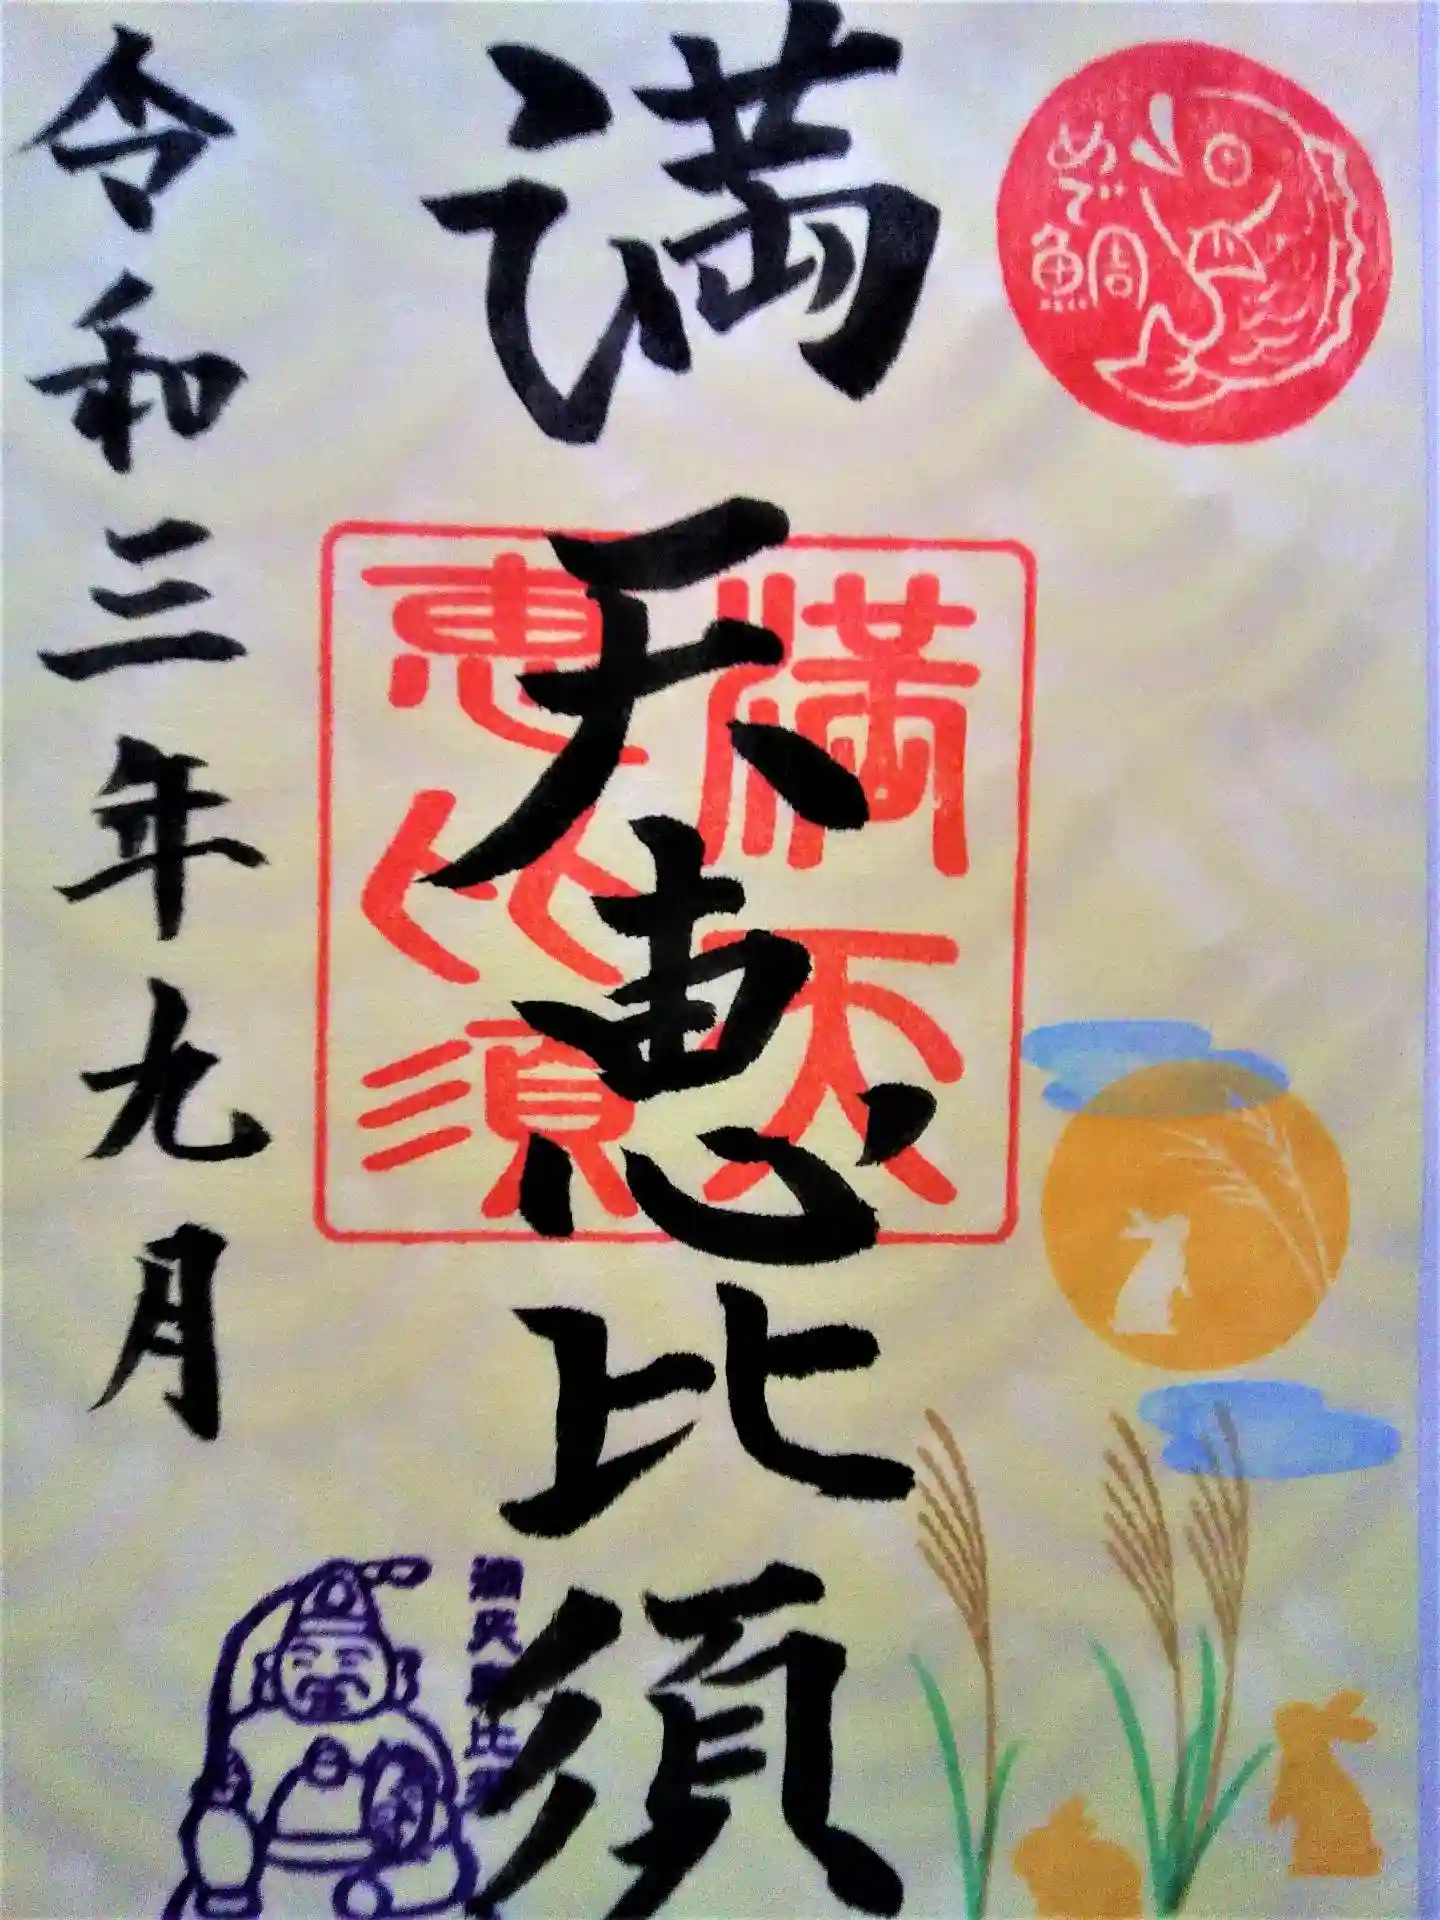 めで鯛
満天恵比須
満天
恵比須
令和三年九月
満天恵比須